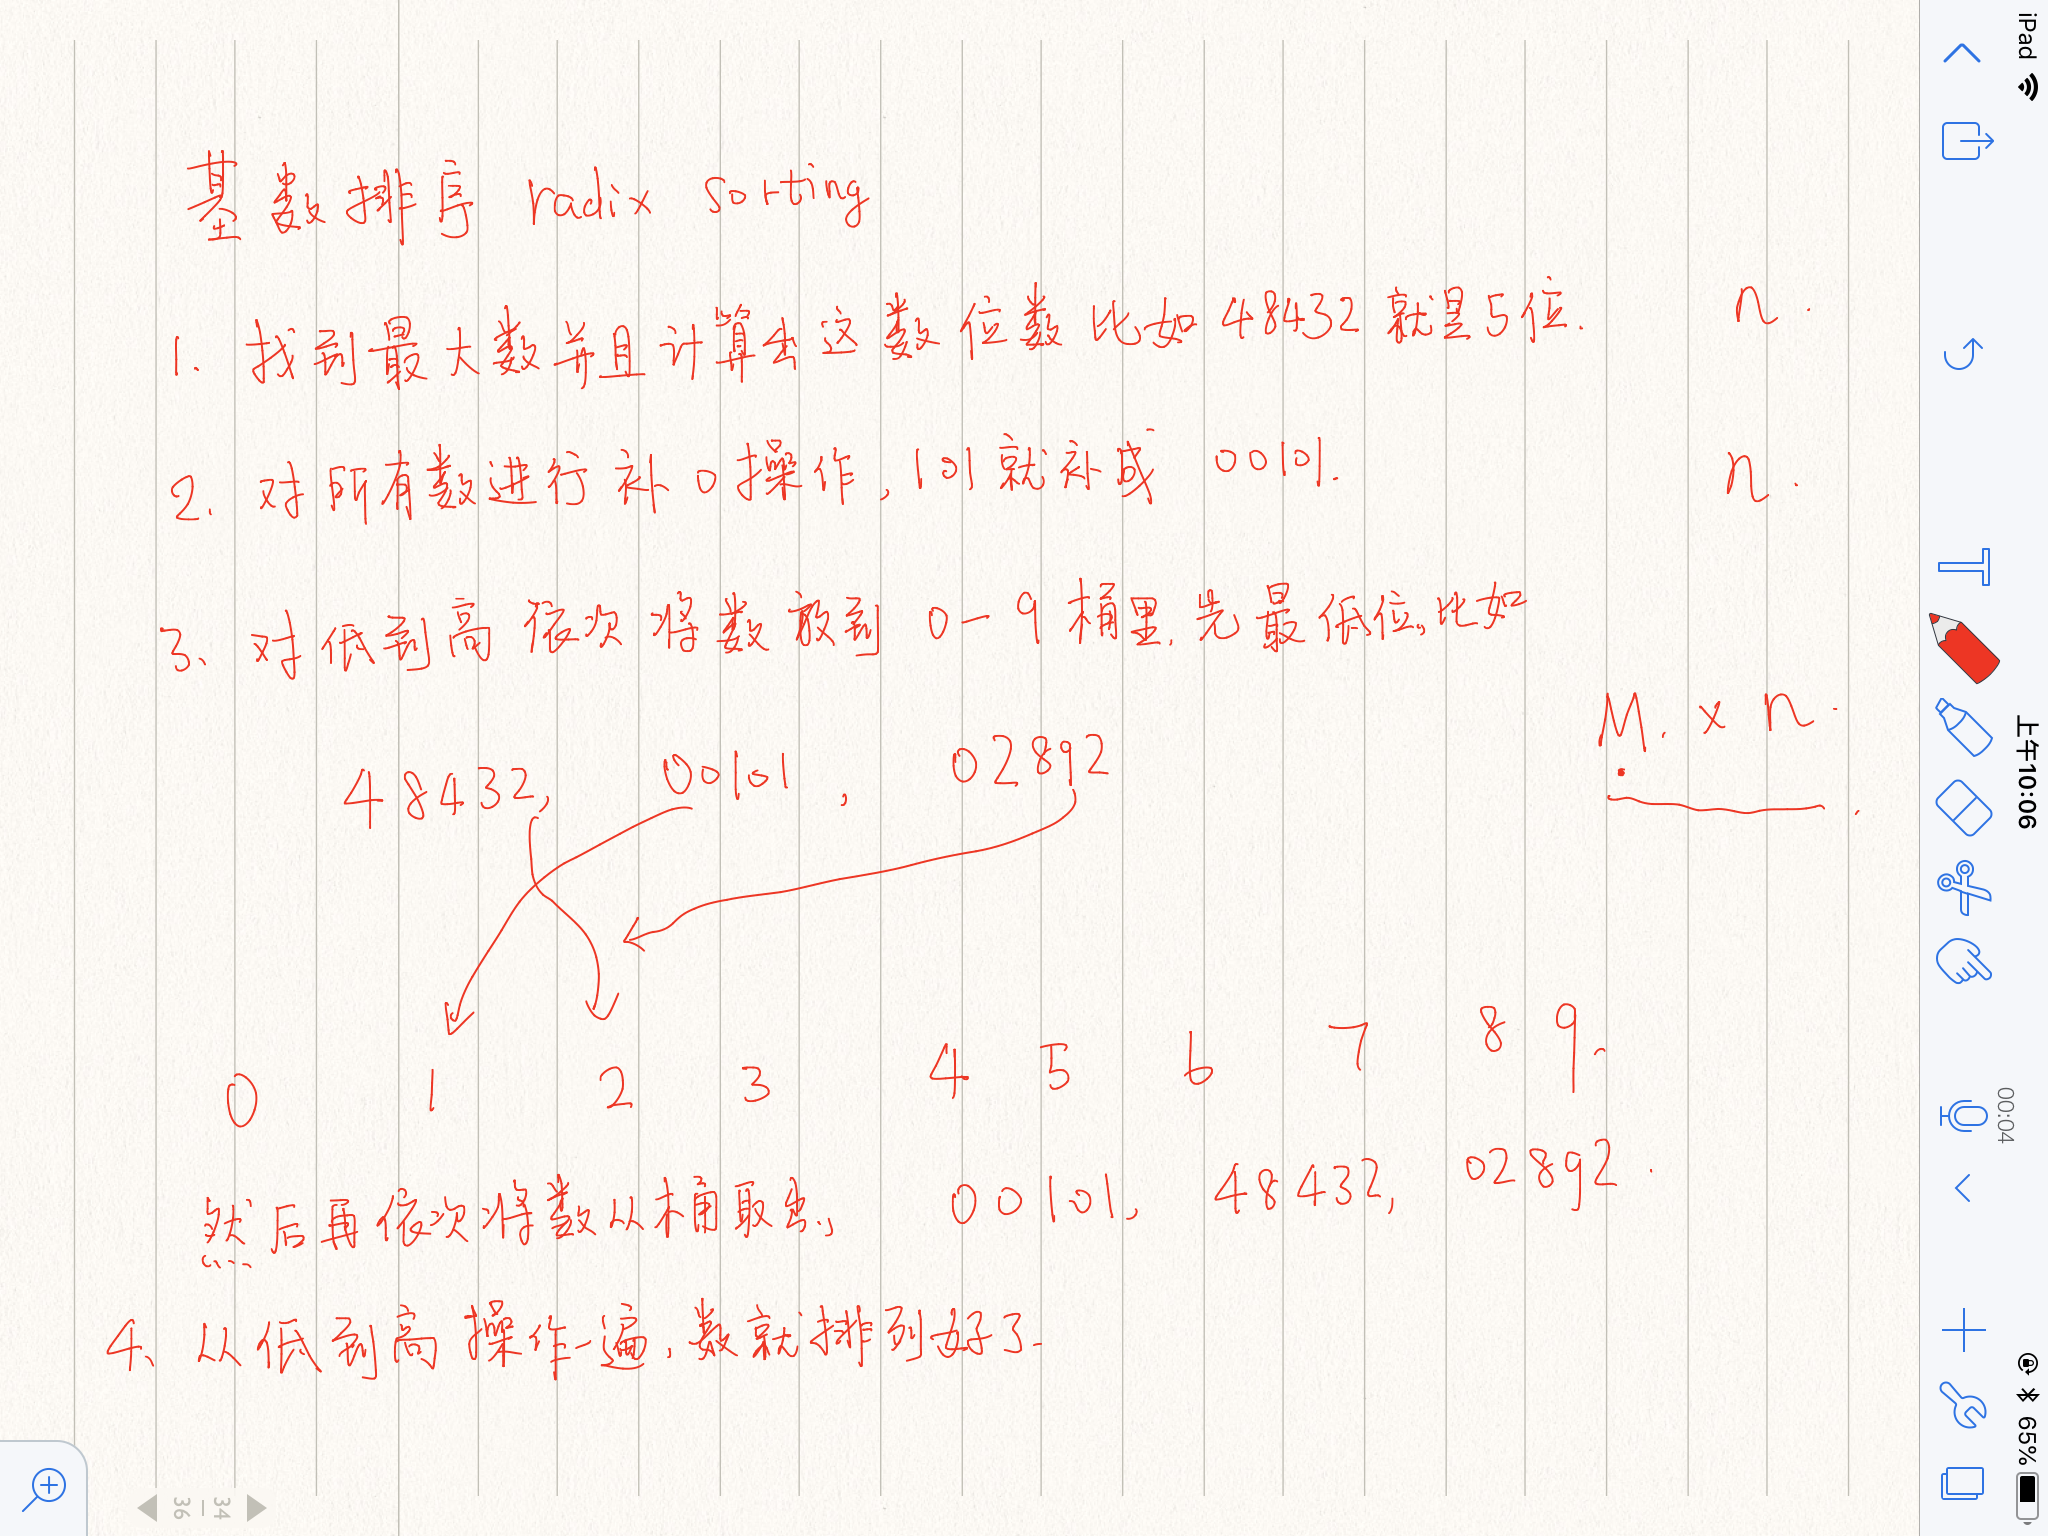 基数排序 radix sorting
1. 找到最大数并且计算出这数位数 比如 48432 就是5位. n.
2. 对所有数进行补0操作, 101就补成 00101. n.
3、对低到高依次将数放到 0-9 桶里, 先最低位。比如
M. x n.
48432, 00101, 02892
0 1 2 3 4 5 6 7 8 9.
然后再依次将数从桶取出, 00101, 48432, 02892.
4、从低到高操作一遍, 数就排列好了.
iPad
上午10:06
65%
00:04
34 - 36